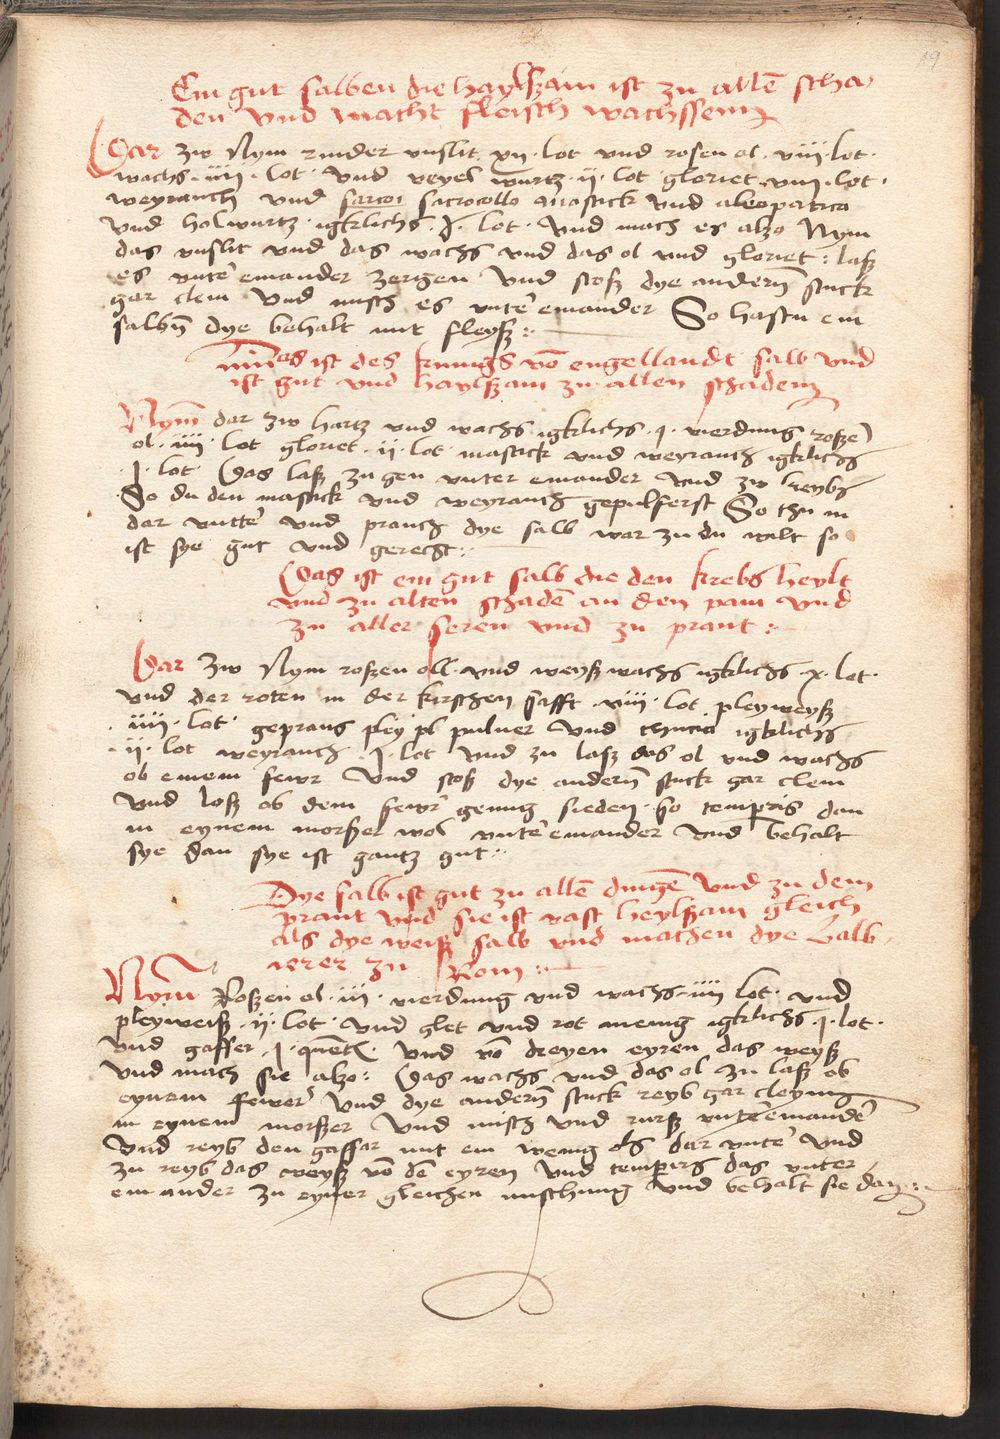 19
Ein gut salben die haylszam ist zu allē scha
den vnd macht fleisch wachssenn
Dar zw Nym rinder vnslit xij lot vnd rosen ol viij lot
wachs iiij lot vnd veyel wurtz ij lot gloriet viij lot
weyrauch vnd sarcoi sacrocollo mastick vnd aleopatica
vnd holwurtz igklichs j lot vnd mach es alzo Nym
das vnslit vnd das wachs vnd das ol vnd gloriet laß
es vnter einander zergen vnd stoß dye andern stuck
gar clein vnd misch es vnter einander So hastu ein
salbn dye behalt mit fleysz
Das ist des kunigs vō engellandt salb vnd
ist gut vnd haylszam zu allen schaden
Nym dar zw hartz vnd wachs igklichs j vierdung rosze
ol iiij lot gloriet ij lot mastick vnd weyrauch igklichs
j lot Das laß zu gen vnter einander vnd zw reybs
So du den mastick vnd weyrauch gepulferst So thu in
dar vnter vnd prauch dye salb war zu du wilt so
ist sye gut vnd gerecht
Das ist ein gut salb die den krebs heylt
vnd zu alten schadē an den pain vnd
zu aller seren vnd zu prant
Dar zw Nym roszen oll vnd weysz wachs igklichs x lot
vnd der roten in der kirschen safft viij lot pleyweysz
iiij lot geprans pley pl puluer vnd thucia igklichs
ij lot weyrauch j lot vnd zu laß das ol vnd wachs
ob einem fewr vnd stoß dye andern stuck gar clein
vnd loß ob dem fewr genug sieden so temperirs dan
in eynem morszer wol vnter einander vnd behalt
sye dan sye ist gantz gut
Dye salb ist gut zu allē dingē vnd zu dem
prant vnd sie ist vast heylszam gleich
als dye weisz salb vnd machen dye balb
irer zu Rom
Nym Roszen ol iij vierdung vnd wachs iiij lot vnd
pleyweisz ij lot vnd glet vnd rot menig igklichs j lot
vnd gaffer j quētl vnd vō dreyen eyren das weysz
vnd mach sie alzo Das wachs vnd das ol zu laß ob
eynem fewer vnd dye andern stuck reyb gar cleynn
in eynem morszer vnd misch vnd rursz vnter einander
vnd reyb den gaffar mit ein wenig ols dar vnter vnd
zu reyb das weysz vō dē eyren vnd temperirs das vnter
ein ander zu eyner gleichen mischung vnd behalt sie dan